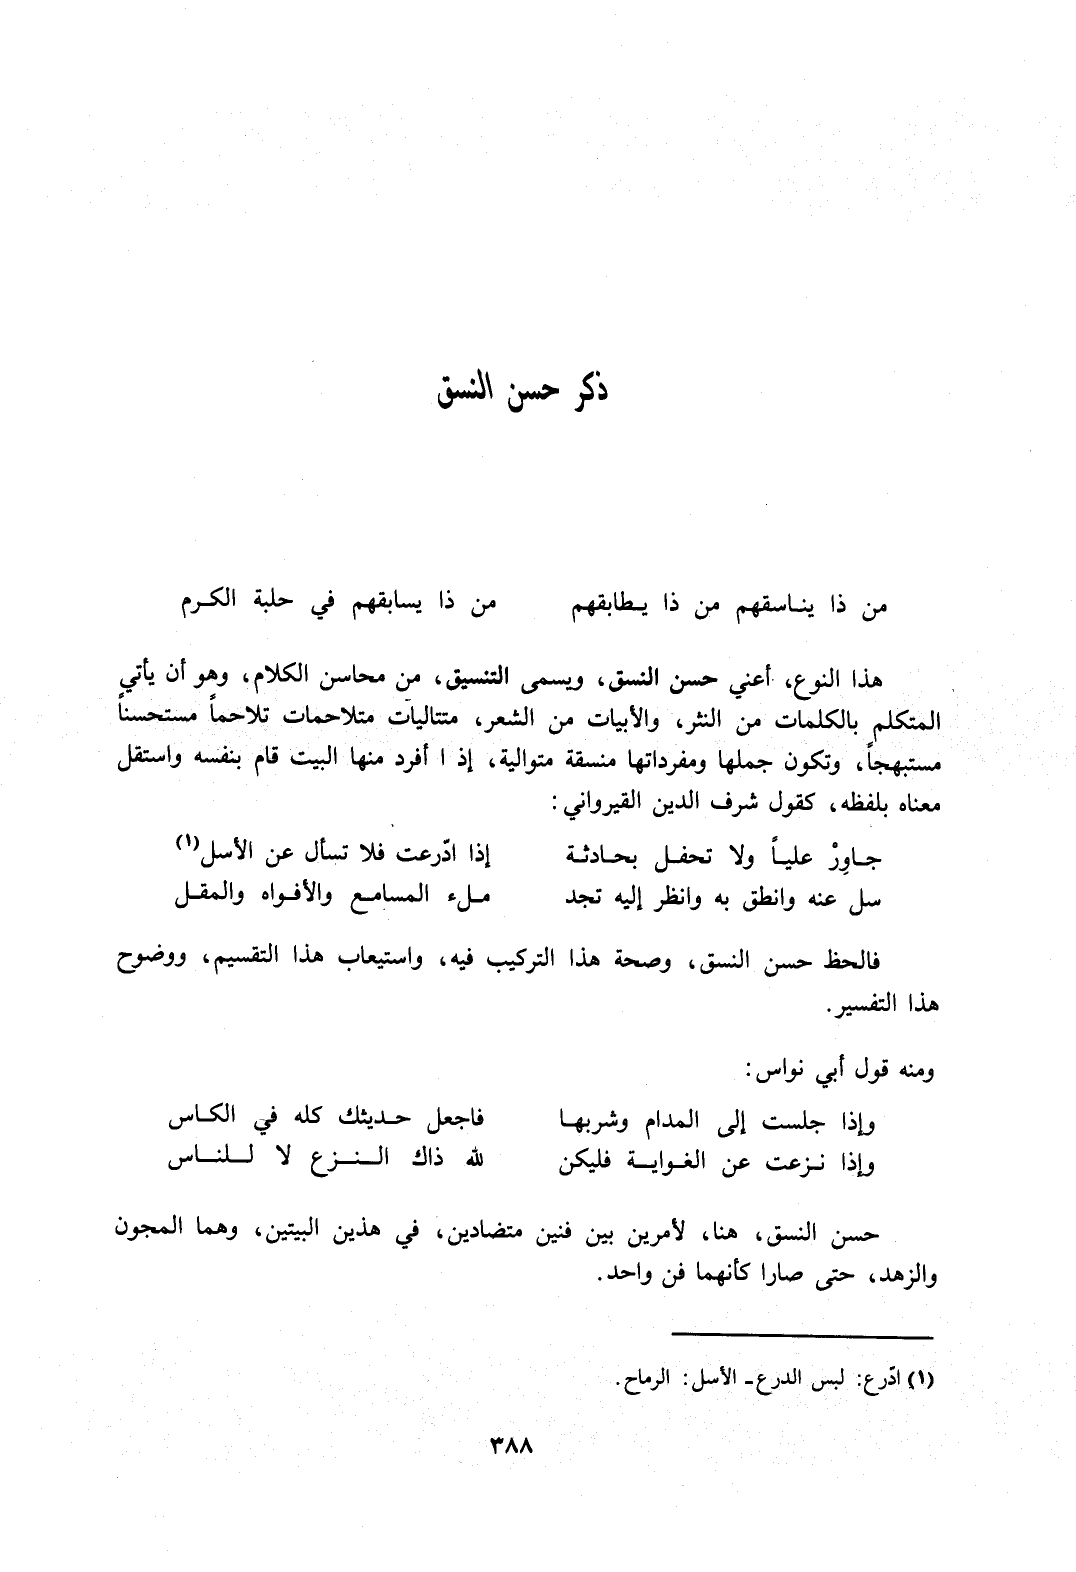 ذكر حسن النسق
من ذا ينـاسقهم من ذا يـطابقهم من ذا يسابقهم في حلبة الكـرم
هذا النوع، أعني حسن النسق، ويسمى التنسيق، من محاسن الكلام، وهو أن يأتي
المتكلم بالكلمات من النثر، والأبيات من الشعر، متتاليات متلاحمات تلاحماً مستحسناً
مستبهجاً، وتكون جملها ومفرداتها منسقة متوالية، إذ ا أفرد منها البيت قام بنفسه واستقل
معناه بلفظه، كقول شرف الدين القيرواني:
جـاوِرْ عليـاً ولا تحفـل بحـادثـة إذا ادّرعت فلا تسأل عن الأسل(١)
سل عنه وانطق به وانظر إليه تجد مـلء المسامـع والأفـواه والمقـل
فالحظ حسن النسق، وصحة هذا التركيب فيه، واستيعاب هذا التقسيم، ووضوح
هذا التفسير.
ومنه قول أبي نواس:
وإذا جلست إلى المدام وشربهـا فاجعل حـديثك كله في الكـاس
وإذا نـزعت عن الغـوايـة فليكن لله ذاك الـنـزع لا لـلنـاس
حسن النسق، هنا، لأمرين بين فنين متضادين، في هذين البيتين، وهما المجون
والزهد، حتى صارا كأنهما فن واحد.
(١) ادّرع: لبس الدرع ـ الأسل: الرماح.
٣٨٨